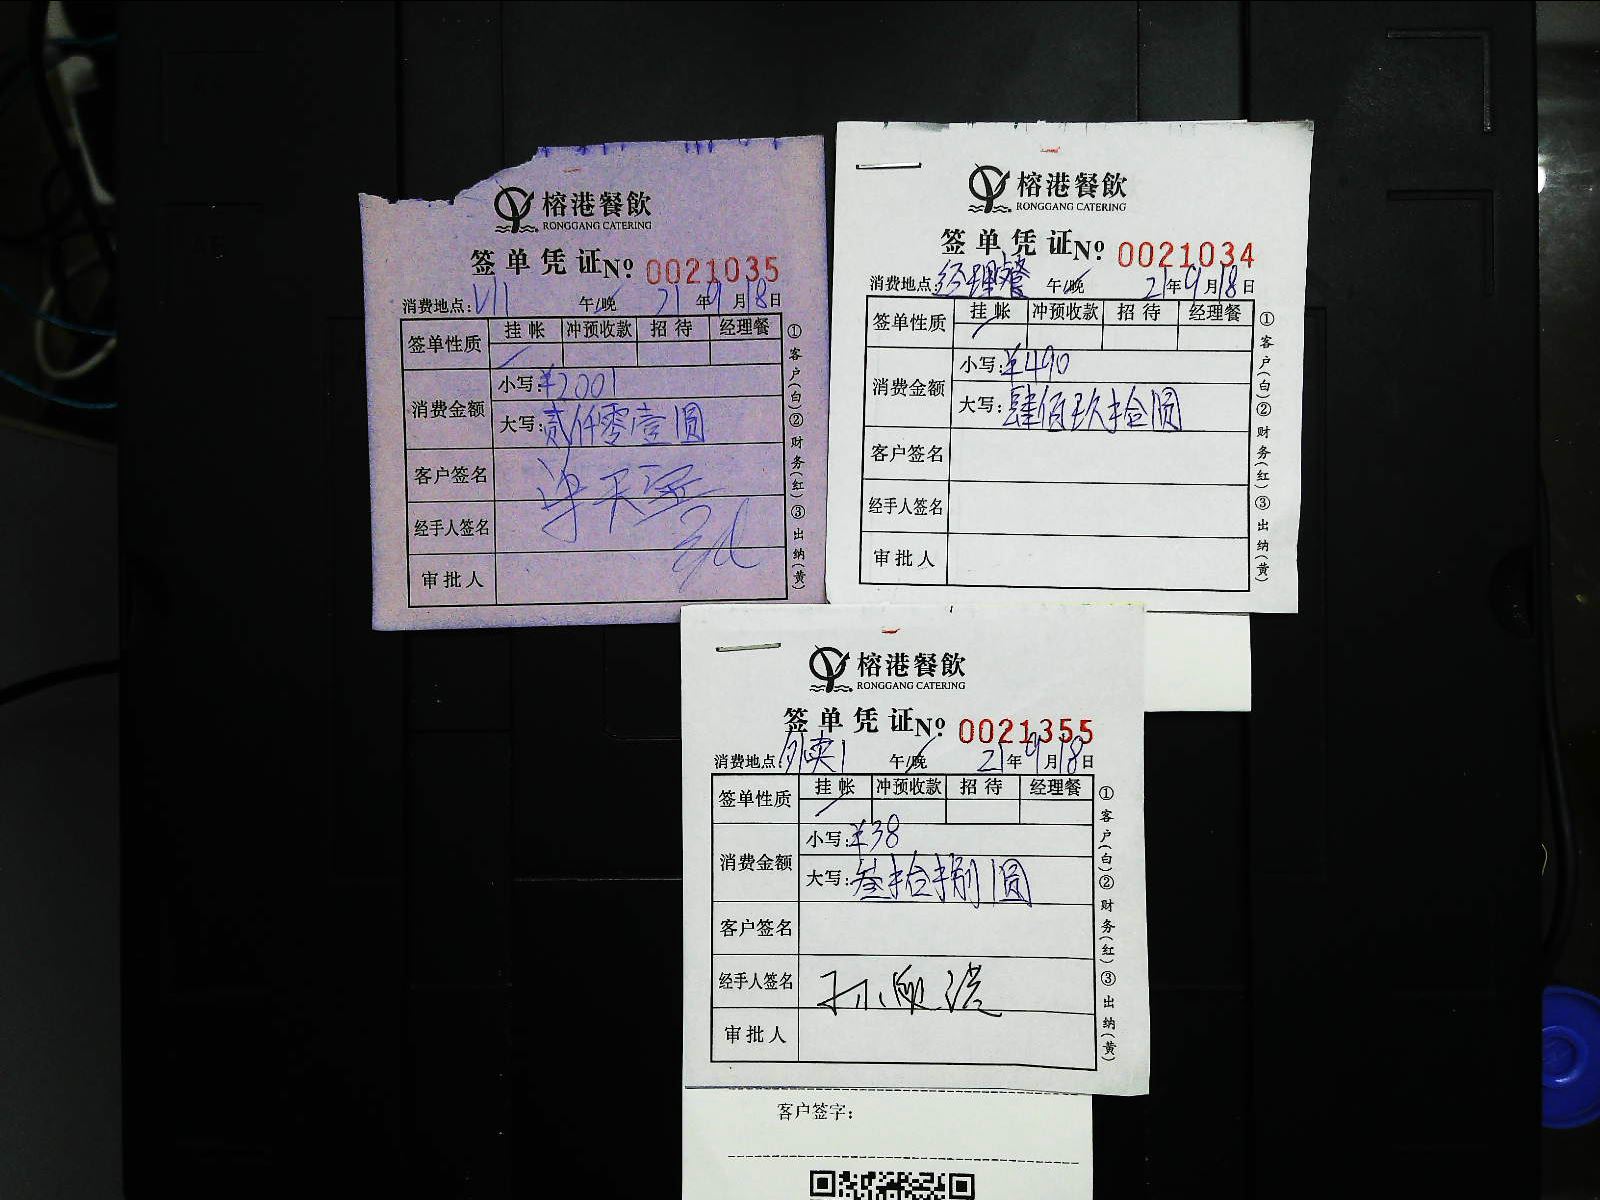 榕港餐飲
RONGGANG CATERING
签单凭证 Nº 0021035
消费地点: V11 午/晚 21年9月18日
签单性质 挂帐 冲预收款 招待 经理餐
消费金额 小写: ¥2001
大写: 贰仟零壹圆
客户签名
经手人签名
审批人
①客户(白)②财务(红)③出纳(黄)
榕港餐飲
RONGGANG CATERING
签单凭证 Nº 0021034
消费地点: 经理餐 午/晚 21年9月18日
签单性质 挂帐 冲预收款 招待 经理餐
消费金额 小写: ¥490
大写: 肆佰玖拾圆
客户签名
经手人签名
审批人
①客户(白)②财务(红)③出纳(黄)
榕港餐飲
RONGGANG CATERING
签单凭证 Nº 0021355
消费地点 外卖1 午/晚 21年9月18日
签单性质 挂帐 冲预收款 招待 经理餐
消费金额 小写: ¥38
大写: 叁拾捌圆
客户签名
经手人签名
审批人
①客户(白)②财务(红)③出纳(黄)
客户签字: